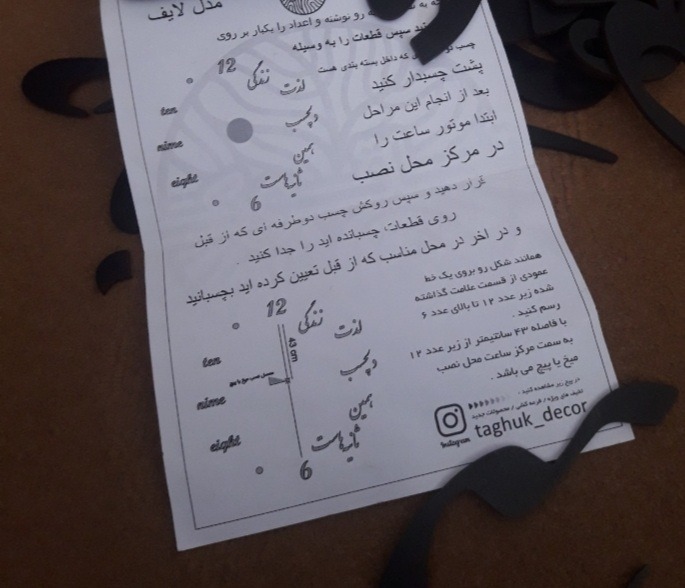 مدل لایف
رو نوشته و اعداد را یکبار بر روی
سپس قطعات را به وسیله
چسب
که داخل بسته بندی هست
پشت چسبدار کنید
بعد از انجام این مراحل
ابتدا موتور ساعت را
در مرکز محل نصب
12
زندگی
لذت
ten
دلچسب
nime
همین
eight
ثانیه‌هاست
6
قرار دهید و سپس روکش چسب دوطرفه ای که از قبل
روی قطعات چسبانده اید را جدا کنید .
و در اخر در محل مناسب که از قبل تعیین کرده اید بچسبانید
همانند شکل رو بروی یک خط
عمودی از قسمت علامت گذاشته
شده زیر عدد ۱۲ تا بالای عدد ۶
رسم کنید .
با فاصله ۴۳ سانتیمتر از زیر عدد ۱۲
به سمت مرکز ساعت محل نصب
میخ یا پیچ می باشد .
12
زندگی
لذت
43 cm
ten
دلچسب
nime
همین
eight
ثانیه‌هاست
6
در پیج زیر مشاهده کنید :
تخفیف های ویژه / قرعه کشی / محصولات جدید
Instagram
taghuk_decor